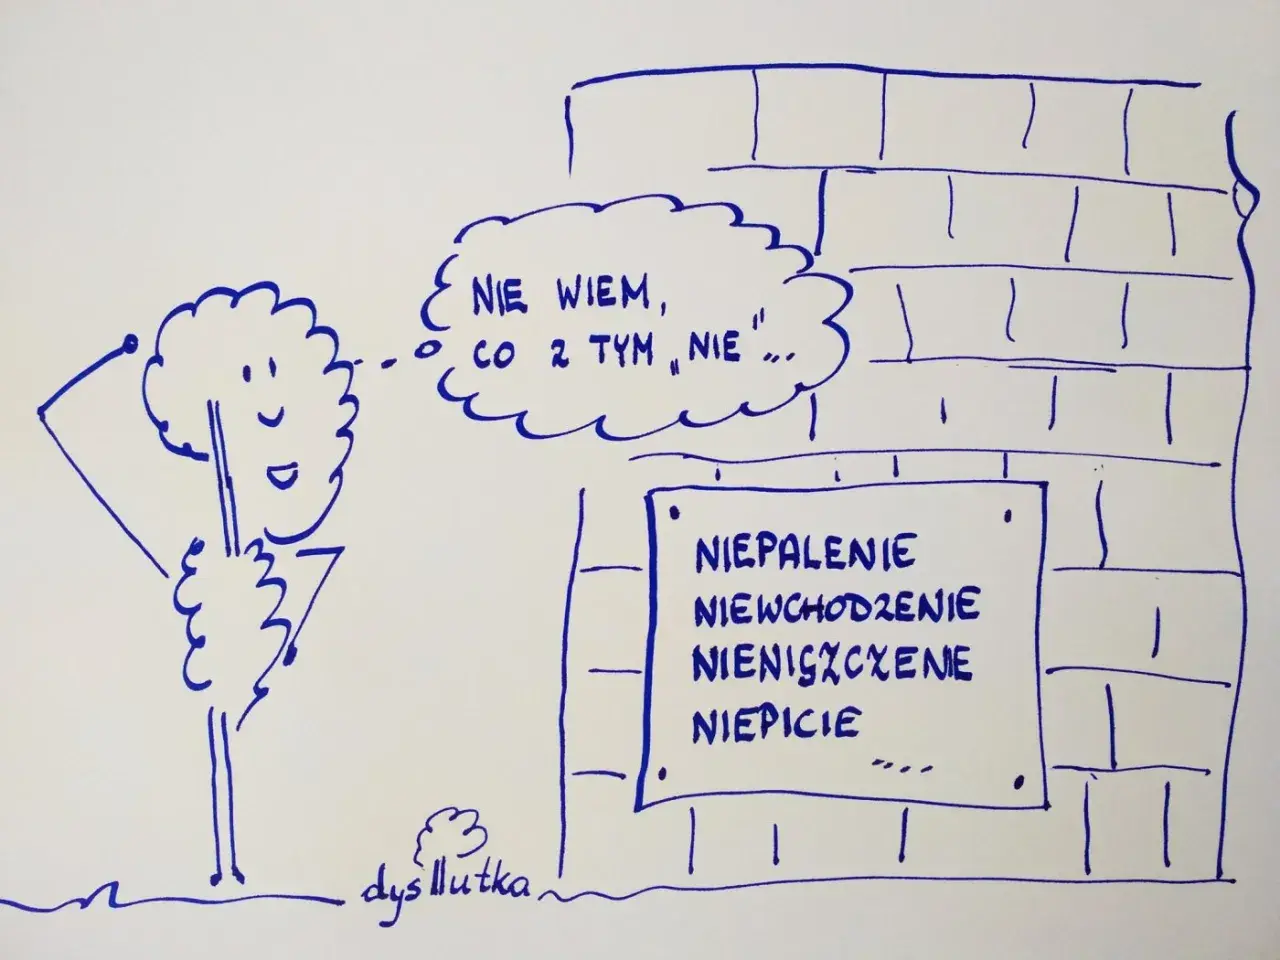 NIE WIEM,
CO Z TYM „NIE"...
NIEPALENIE
NIEWCHODZENIE
NIENISZCZENIE
NIEPICIE
....
dysllutka